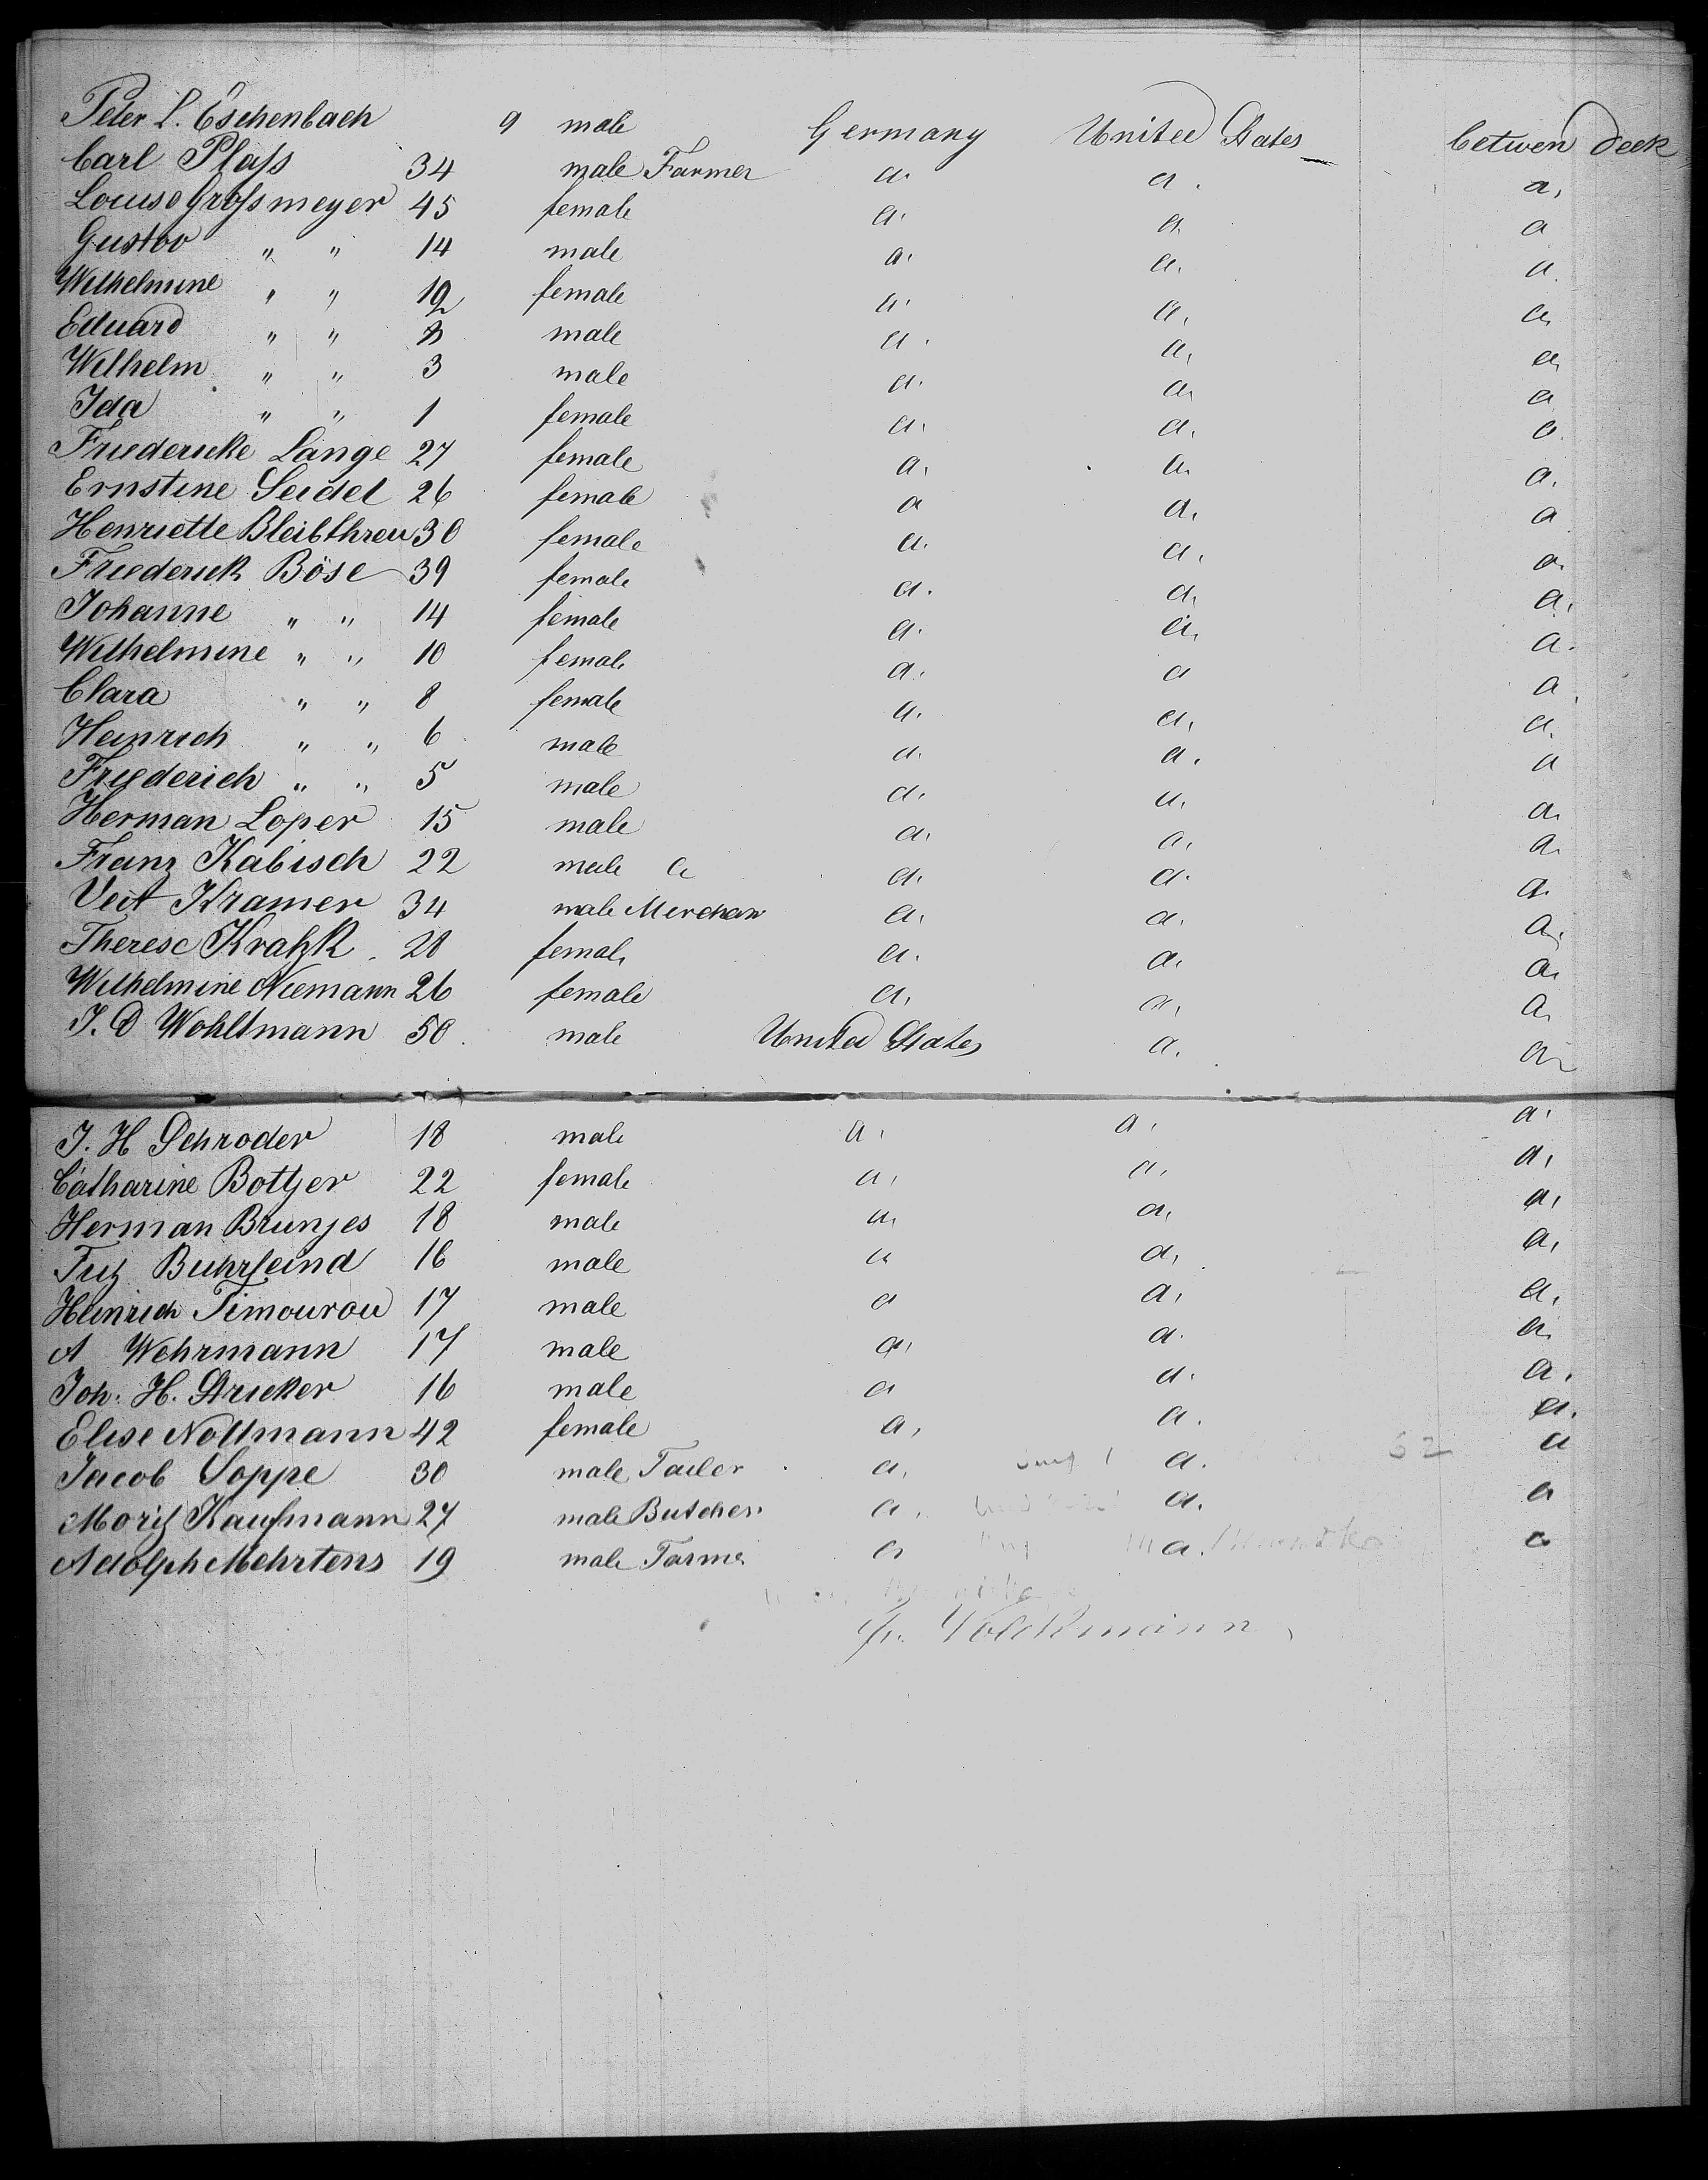 Peter L. Eschenbach 9 male Germany United States betwen deck
Carl Plaſs 34 male Farmer a. a. a.
Louise Groſsmeyer 45 female a. a. a
Gustov " " 14 male a. a. a.
Wilhelmine " " 12 female a. a. a
Eduard " " male a. a. a
Wilhelm " " 3 male a. a. a
Ida " " 1 female a. a. a.
Friedericke Lange 27 female a. a. a.
Ernstine Seidel 26 female a a. a
Henriette Bleibthreu 30 female a. a. a.
Friederick Böse 39 female a. a. a.
Johanne " " 14 female a. a. a.
Wilhelmine " " 10 female a. a a.
Clara " " 8 female a. a. a.
Heinrich " " 6 male a. a. a
Friederich " " 5 male a. a. a.
Herman Loper 15 male a. a. a.
Franz Kabisch 22 male a a. a. a.
Veit Kramer 34 male Merchan a. a. a.
Therese 28 female a. a. a.
Wilhelmine Niemann 26 female a. a. a.
J. D Wohltmann 50 male United States a. a
J. H Schroder 18 male a. a. a.
Catharine Bottjer 22 female a. a. a.
Herman Brunjes 18 male a. a. a.
Fritz Buhrfeind 16 male a a. a.
Heinrich Timourou 17 male a a. a.
A Wehrmann 17 male a. a. a.
Joh. H. Strucker 16 male a a. a.
Elise Nottmann 42 female a. a. a.
Jacob Soppe 30 male Tailer a. a. 52 a
Moritz Kaufmann 27 male Butcher a. a. a
Adolph Mehrtens 19 male Farmer a a. a
Volckmann